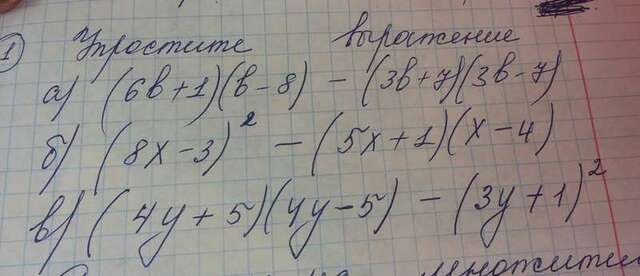 1 Упростите выражение
а) (6в+1)(в-8) - (3в+7)(3в-7)
б) (8x-3)² - (5x+1)(x-4)
в) (4y+5)(4y-5) - (3y+1)²